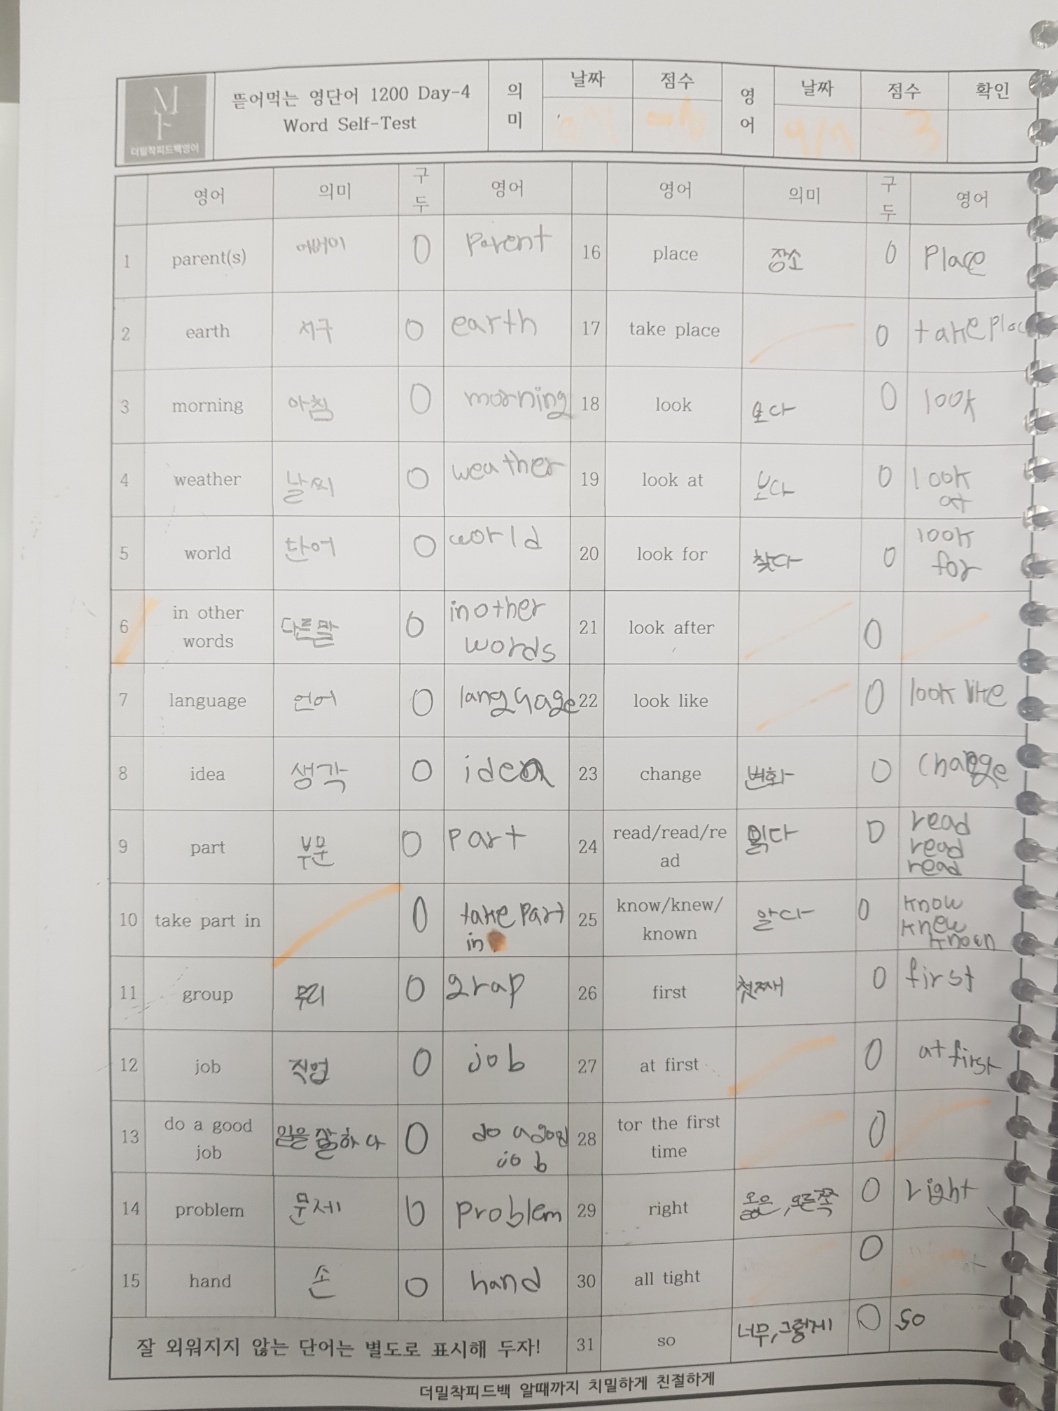 뜯어먹는 영단어 1200 Day-4
Word Self-Test
의미
날짜
점수
영어
날짜
점수
확인
더밀착피드백영어
영어 의미 구두 영어 영어 의미 구두 영어
1 parent(s) 어버이 O parent 16 place 장소 O place
2 earth 지구 O earth 17 take place O take place
3 morning 아침 O morning 18 look 보다 O look
4 weather 날씨 O weather 19 look at 보다 O look at
5 world 단어 O world 20 look for 찾다 O look for
6 in other words 다른말 O in other words 21 look after O
7 language 언어 O language 22 look like O look like
8 idea 생각 O idea 23 change 변화 O change
9 part 부문 O part 24 read/read/read 읽다 O read read read
10 take part in O take part in 25 know/knew/known 알다 O know knew known
11 group 무리 O grap 26 first 첫째 O first
12 job 직업 O job 27 at first O at first
13 do a good job 일을 잘하다 O do a good job 28 tor the first time O
14 problem 문제 O problem 29 right 옳은, 오른쪽 O right
15 hand 손 O hand 30 all tight O
잘 외워지지 않는 단어는 별도로 표시해 두자! 31 so 너무, 그렇게 O so
더밀착피드백 알때까지 치밀하게 친절하게